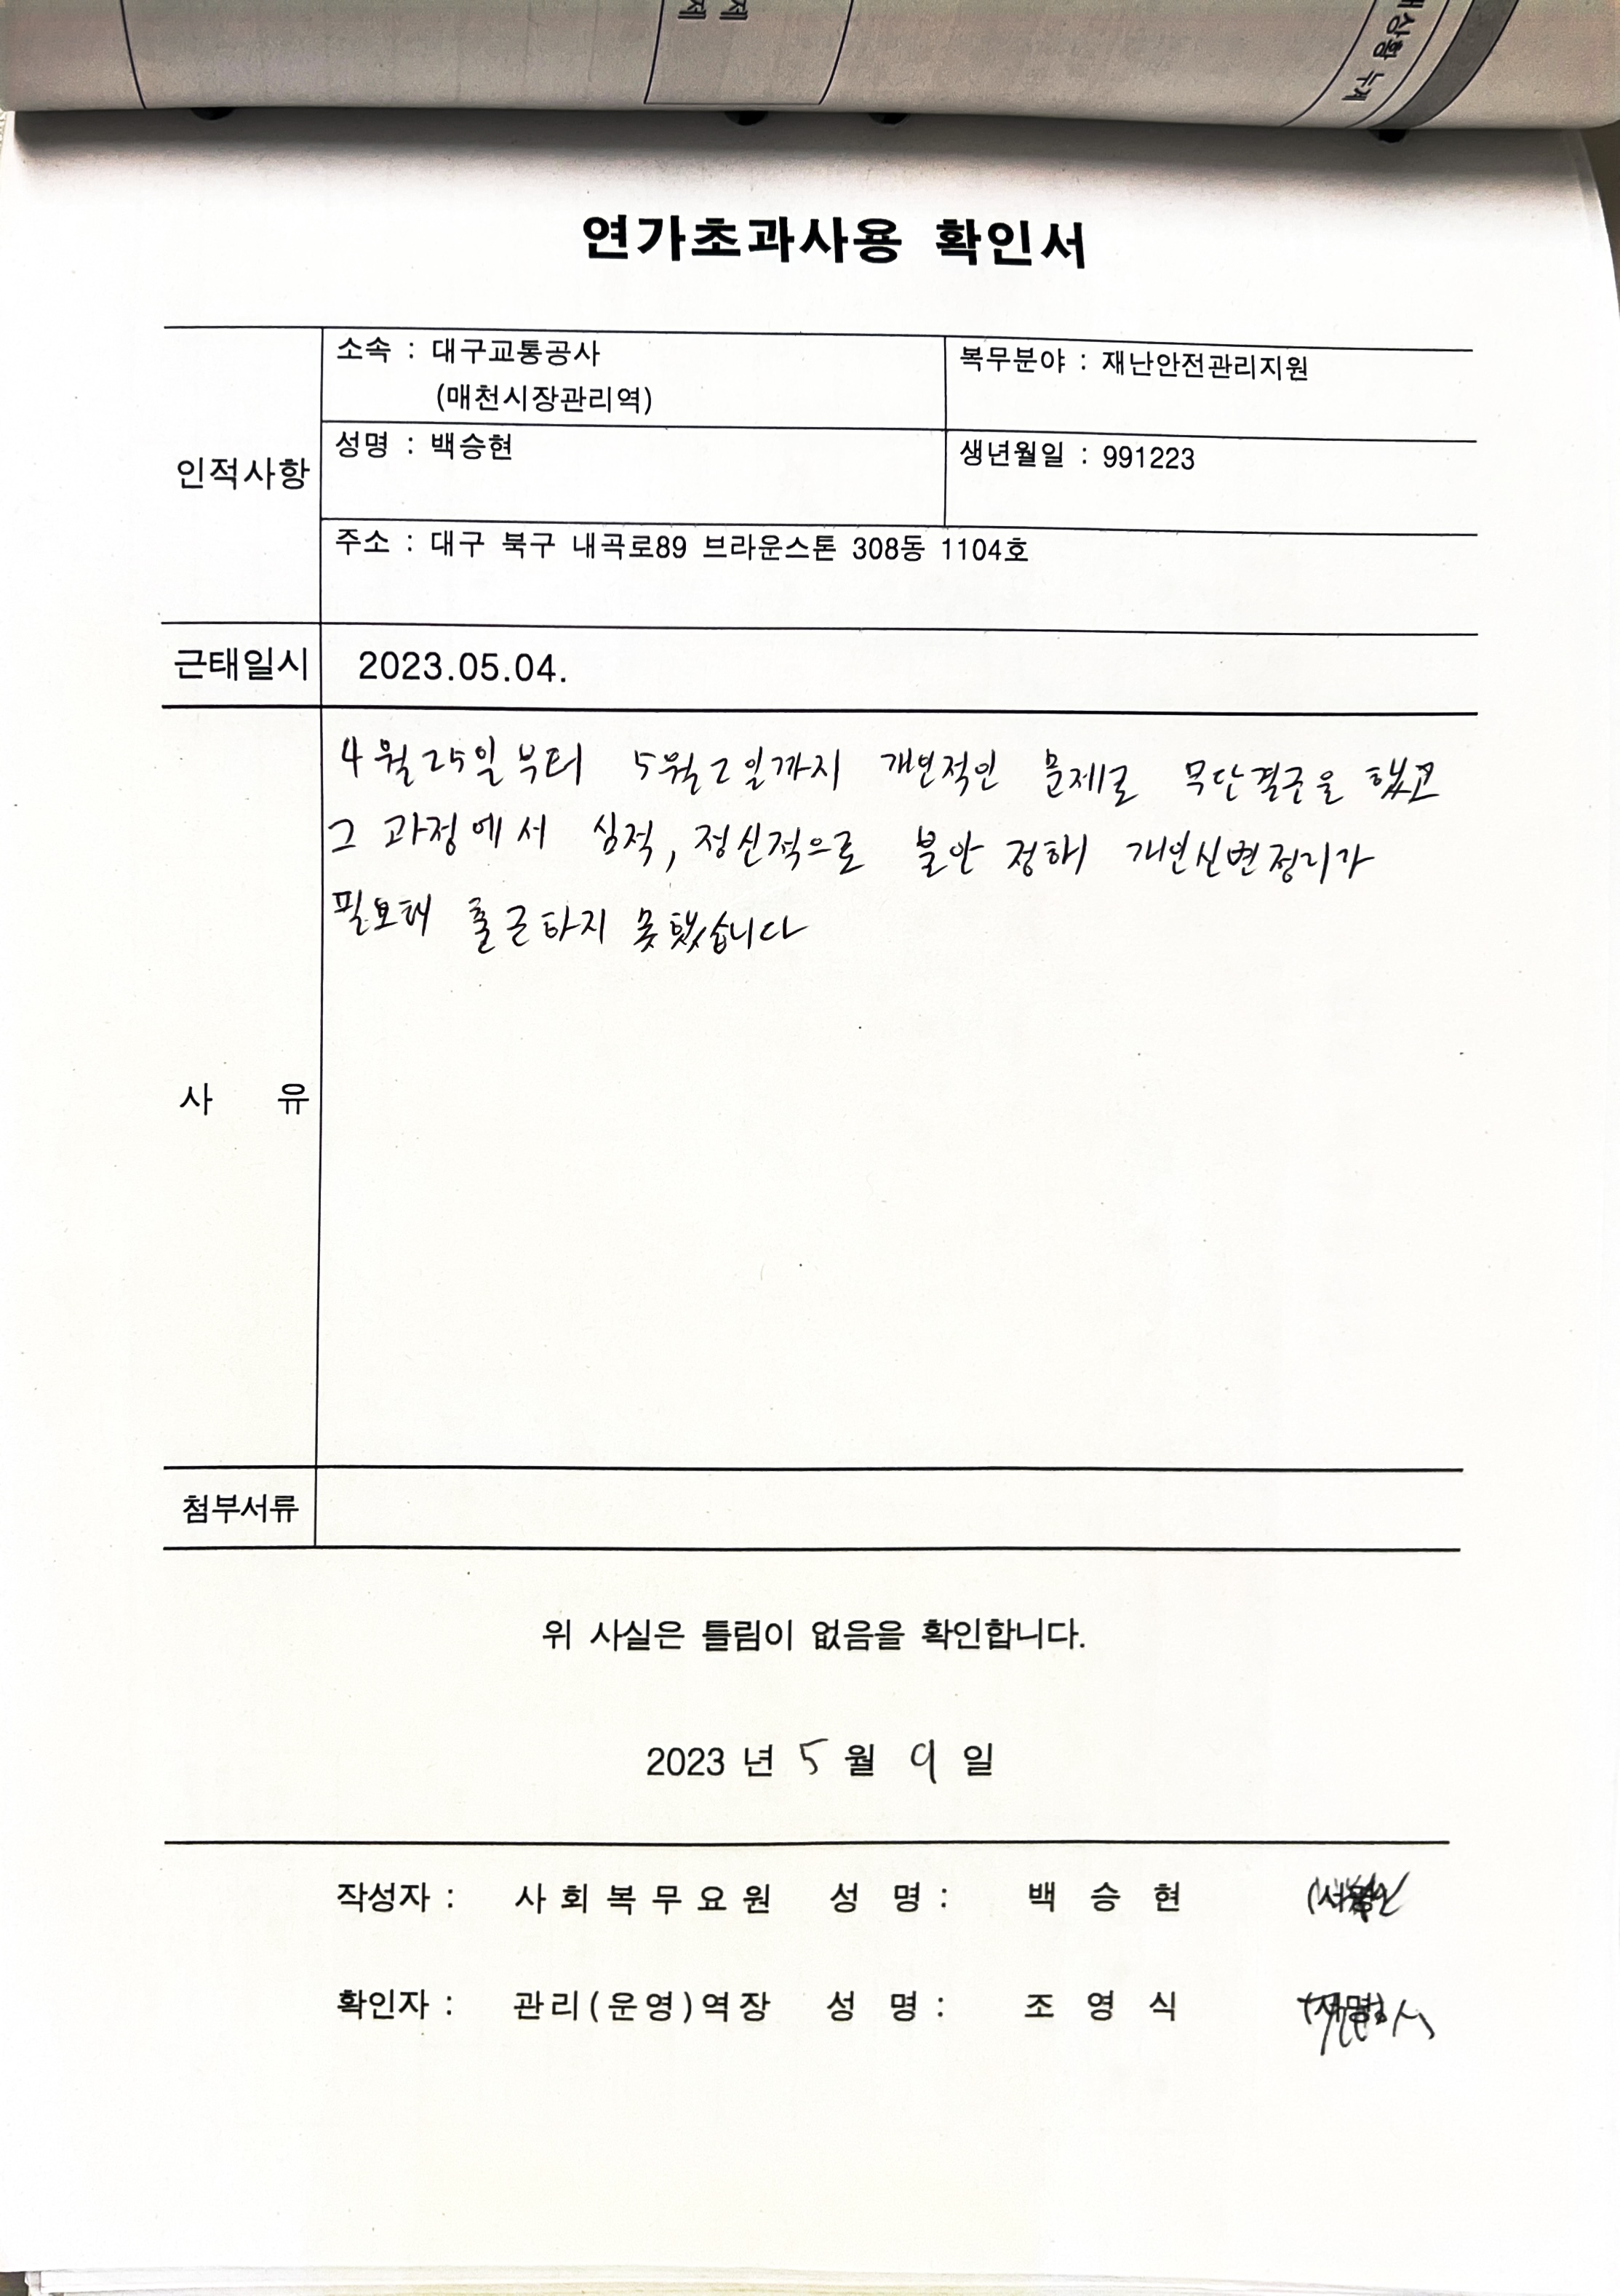 제
제
해상황 누계
연가초과사용 확인서
인적사항
소속 : 대구교통공사
(매천시장관리역)
복무분야 : 재난안전관리지원
성명 : 백승현
생년월일 : 991223
주소 : 대구 북구 내곡로89 브라운스톤 308동 1104호
근태일시
2023.05.04.
사 유
4월25일부터 5월2일까지 개인적인 문제로 무단결근을 했고
그 과정에서 심적, 정신적으로 불안정해 개인신변정리가
필요해 출근하지 못했습니다
첨부서류
위 사실은 틀림이 없음을 확인합니다.
2023 년 5 월 9 일
작성자 : 사회복무요원 성 명 : 백 승 현 (서명)
확인자 : 관리(운영)역장 성 명 : 조 영 식 (서명)